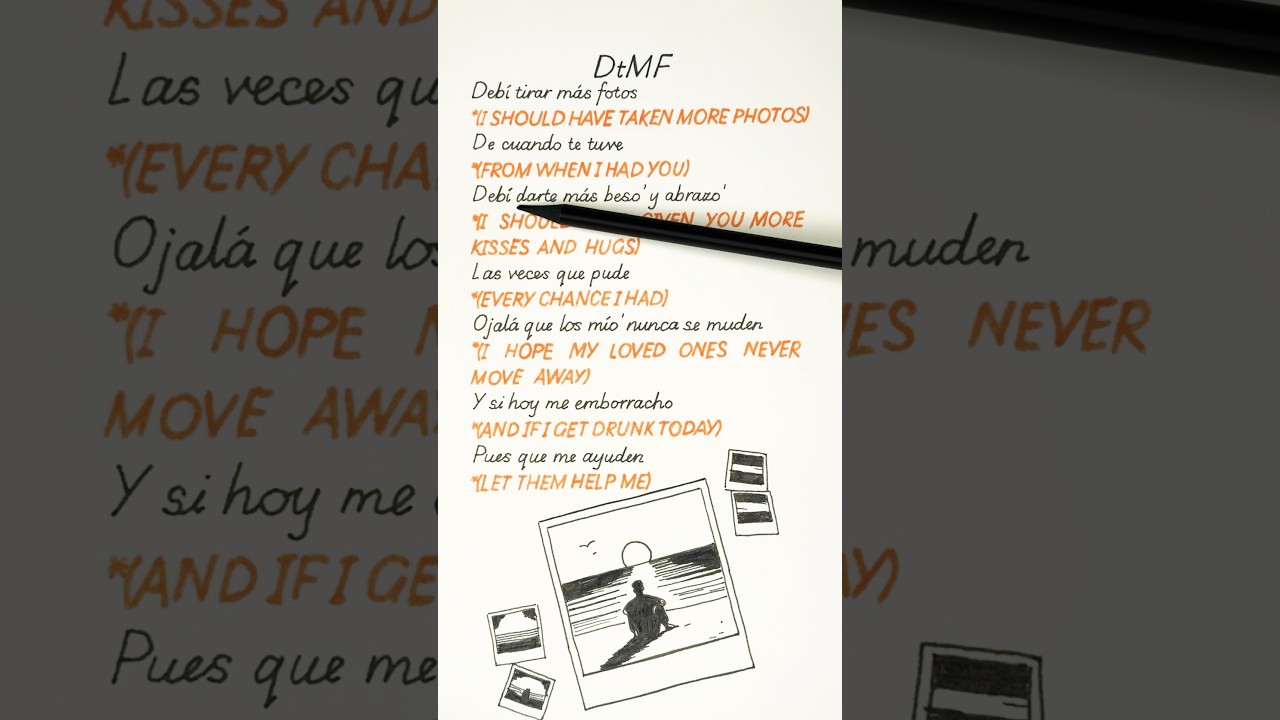 DtMF
Debí tirar más fotos
*(I SHOULD HAVE TAKEN MORE PHOTOS)
De cuando te tuve
*(FROM WHEN I HAD YOU)
Debí darte más beso' y abrazo'
*(I SHOULD GIVEN YOU MORE
KISSES AND HUGS)
Las veces que pude
*(EVERY CHANCE I HAD)
Ojalá que los mío' nunca se muden
*(I HOPE MY LOVED ONES NEVER
MOVE AWAY)
Y si hoy me emborracho
*(AND IF I GET DRUNK TODAY)
Pues que me ayuden
*(LET THEM HELP ME)